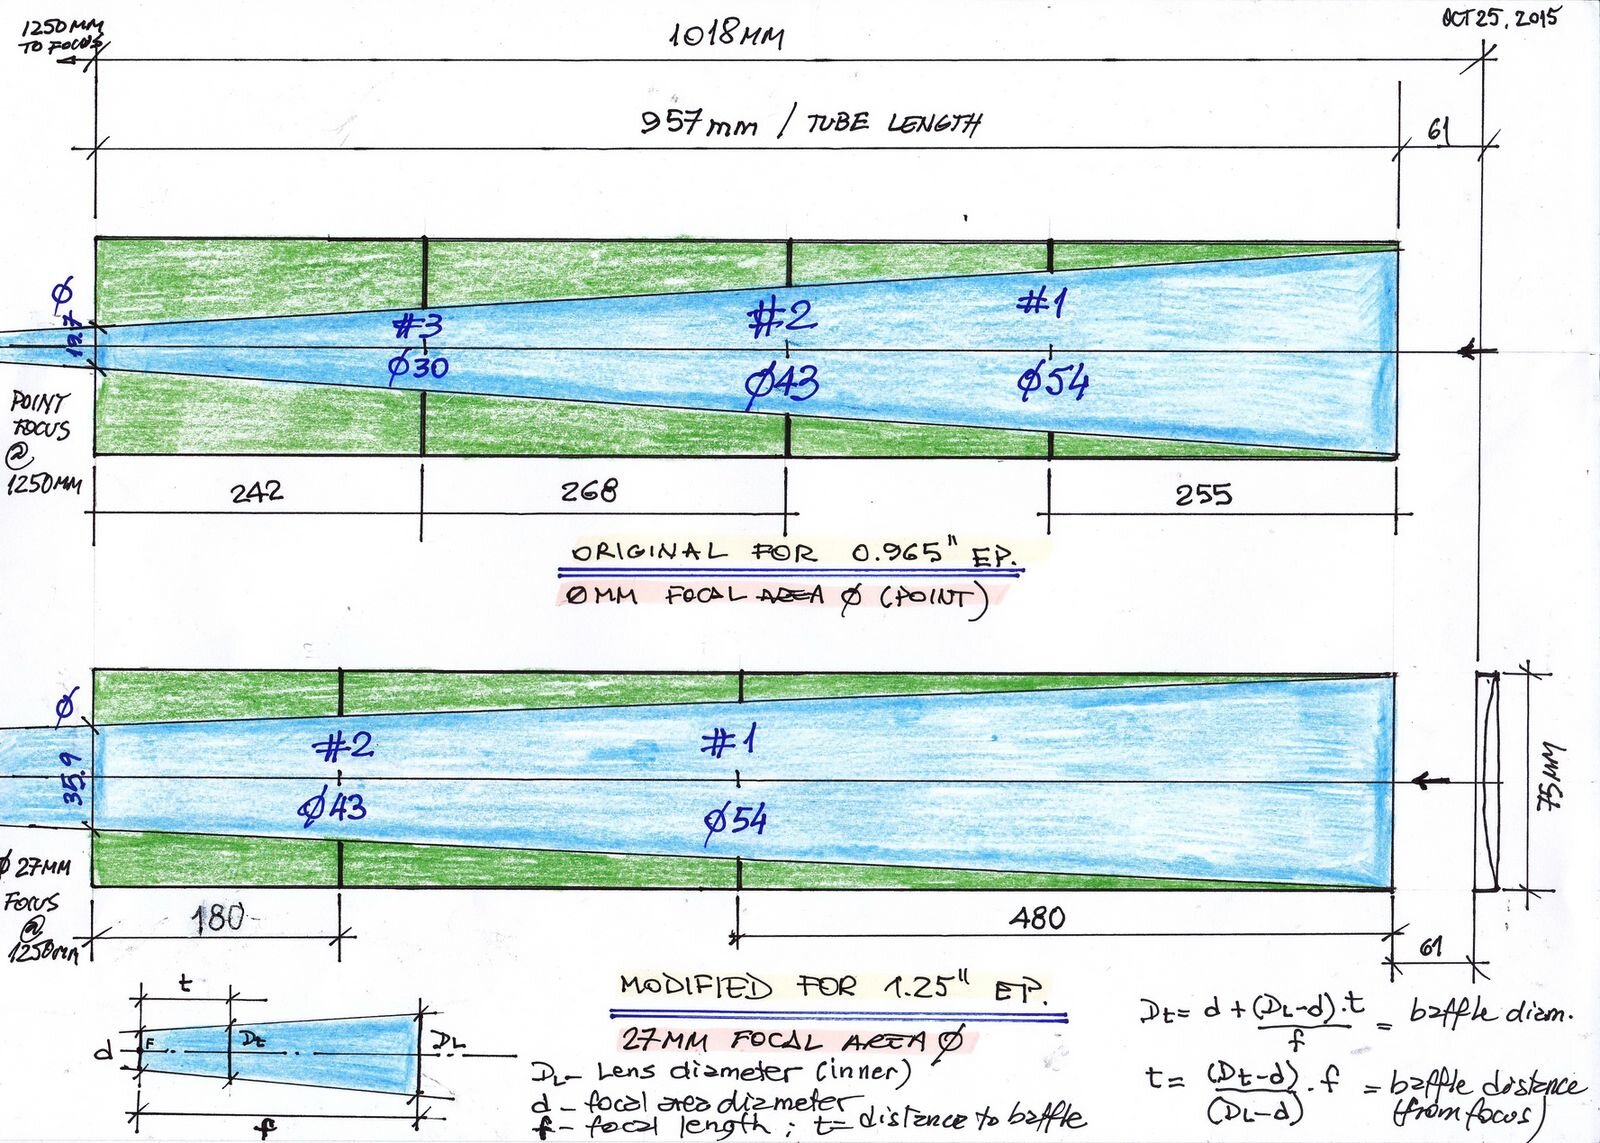 1250MM
TO FOCUS
1018MM
OCT 25, 2015
957mm / TUBE LENGTH
61
Ø
#3
#2
#1
Ø30
Ø43
Ø54
POINT
FOCUS
@
1250MM
242
268
255
ORIGINAL FOR 0.965" EP.
0MM FOCAL AREA Ø (POINT)
Ø
35.9
#2
#1
Ø43
Ø54
75MM
Ø27MM
FOCUS
@
1250MM
180
480
61
MODIFIED FOR 1.25" EP.
27MM FOCAL AREA Ø
t
d
F
Dt
DL
f
DL - Lens diameter (inner)
d - focal area diameter
f - focal length ; t= distance to baffle
Dt = d + (DL-d).t / f = baffle diam.
t = (Dt-d) / (DL-d) . f = baffle distance
(from focus)